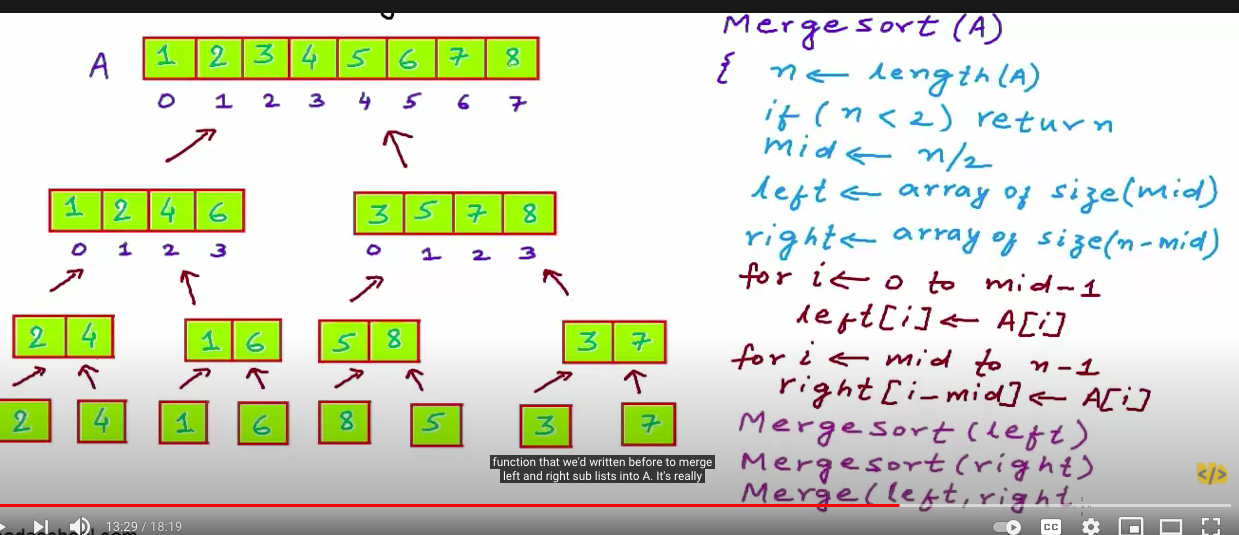 A 1 2 3 4 5 6 7 8
0 1 2 3 4 5 6 7
1 2 4 6
0 1 2 3
3 5 7 8
0 1 2 3
2 4
1 6
5 8
3 7
2 4 1 6 8 5 3 7
Mergesort (A)
{ n ← length(A)
if (n < 2) return
mid ← n/2
left ← array of size(mid)
right ← array of size(n-mid)
for i ← 0 to mid-1
left[i] ← A[i]
for i ← mid to n-1
right[i-mid] ← A[i]
Mergesort(left)
Mergesort(right)
Merge(left, right
function that we'd written before to merge
left and right sub lists into A. It's really
</>
13:29 / 18:19
CC